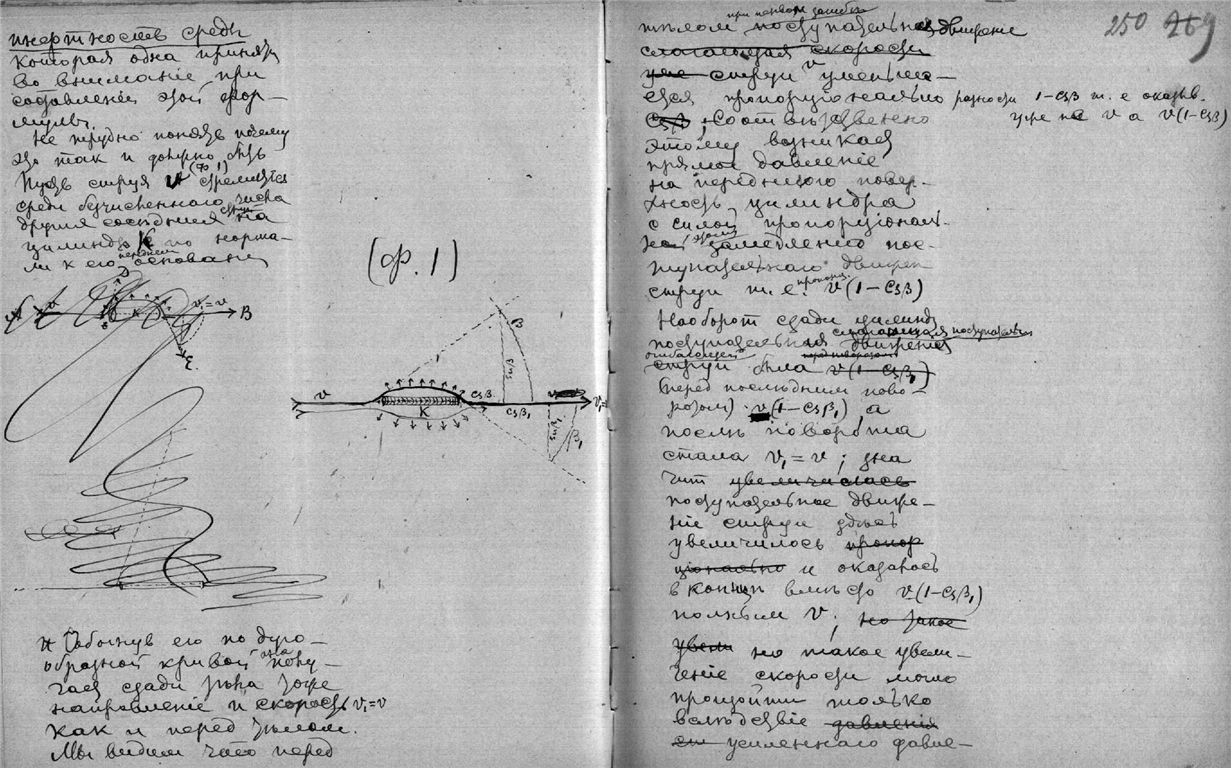 инертность среды
которая одна принята
во вниманіе при
составленіи этой фор-
мулы.
Не трудно понять почему
это так и должно быть
Пусть струя v (ф 1) стремится
среди безчисленнаго числа
других соседних струй на
цилиндр K по норма-
ли к его переднем основанію
A v K v₁=v B
(ф. 1)
v K csβ csβ₁ β β₁
Обогнув его по дуго-
образной кривой она полу-
чает сзади тела тоже
направленіе и скорость v₁=v
как и перед телом.
Мы видим что перед
250 269
при первом загибе
телом поступательное движеніе
слагающая скорости
уже струи v уменьша-
ется пропорціонально разности 1-csβ т. е оказыв.
csβ, соответственно уже не v а v(1-csβ)
этому возникает
прямое давленіе
на переднюю повер-
хность цилиндра
с силой пропорціональ-
но этому замедленію пос-
тупательнаго движен
струи т. е. пропорц. v(1-csβ)
Наоборот сзади цилинд
поступательная движенія
огибающей
струи была v(1-csβ₁)
(перед последним пово-
ротом) v(1-csβ₁) а
после поворота
стала v₁=v; зна
чит увеличилась
поступательное движе-
ніе струи здесь
увеличилось пропор
ціонально и оказалось
в конце вместо v(1-csβ₁)
полным v; но такое
увели но такое увели-
ченіе скорости могло
произойти только
вследствіе давленія
его усиленнаго давле-